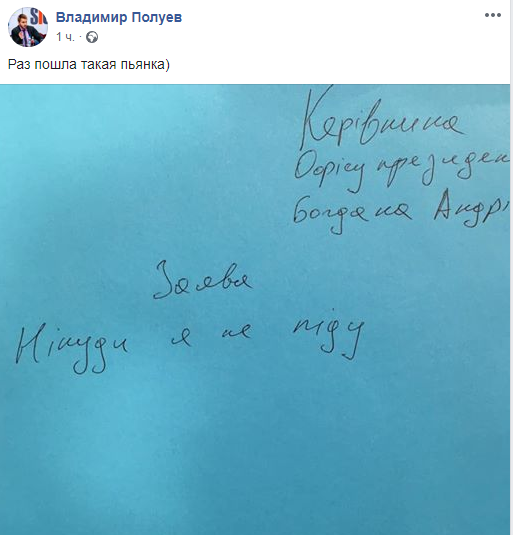 Владимир Полуев
1 ч.
Раз пошла такая пьянка)
Керівника
Офісу президен
Богдана Андрі
Заява
Нікуди я не піду